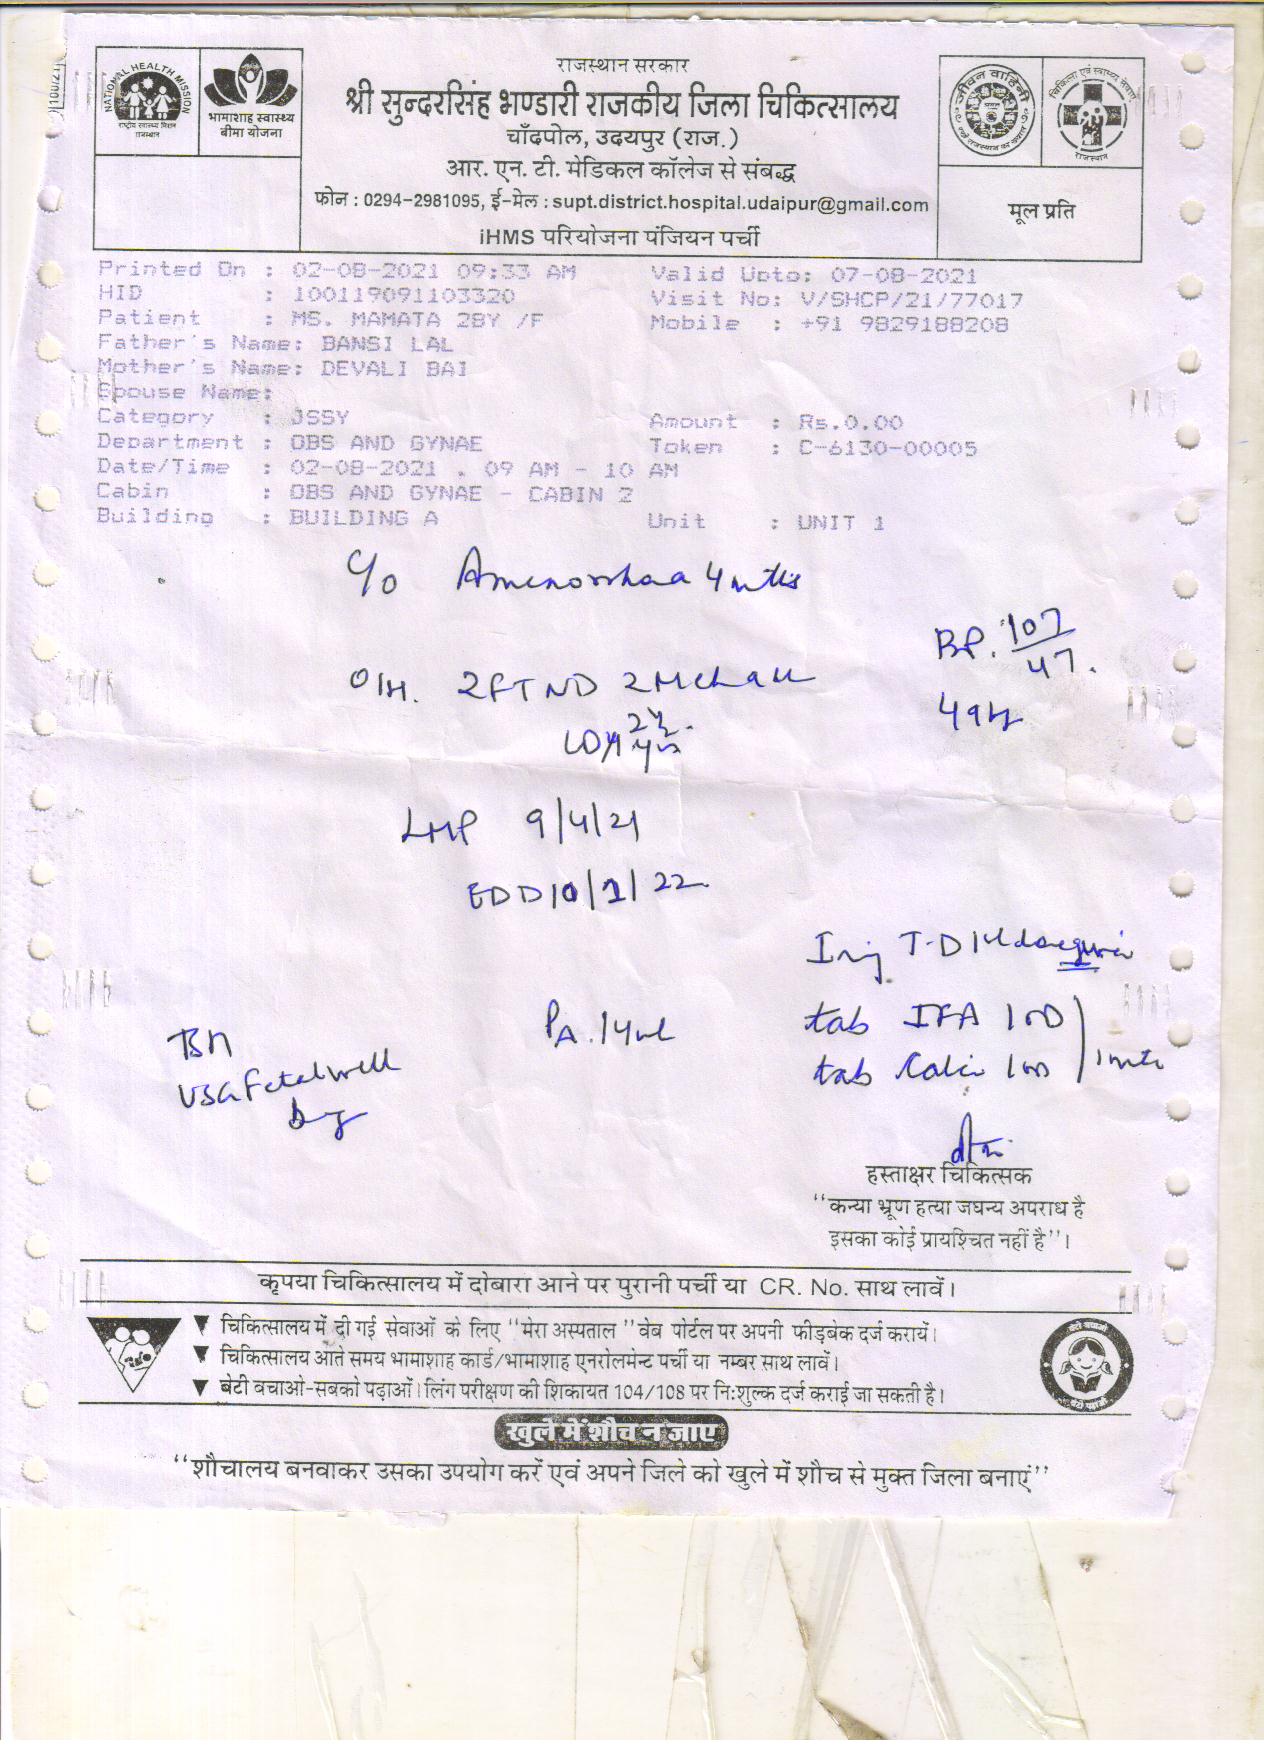 100/21
NATIONAL HEALTH MISSION
राष्ट्रीय स्वास्थ्य मिशन
राजस्थान
भामाशाह स्वास्थ्य
बीमा योजना
राजस्थान सरकार
श्री सुन्दरसिंह भण्डारी राजकीय जिला चिकित्सालय
चाँदपोल, उदयपुर (राज.)
आर. एन. टी. मेडिकल कॉलेज से संबद्ध
फोन : 0294-2981095, ई-मेल : supt.district.hospital.udaipur@gmail.com
iHMS परियोजना पंजियन पर्ची
जीवन वाहिनी
चिकित्सा एवं स्वास्थ्य सेवाएं
राजस्थान
मूल प्रति
Printed On : 02-08-2021 09:33 AM Valid Upto: 07-08-2021
HID : 100119091103320 Visit No: V/SHCP/21/77017
Patient : MS. MAMATA 28Y /F Mobile : +91 9829188208
Father's Name: BANSI LAL
Mother's Name: DEVALI BAI
Spouse Name:
Category : JSSY Amount : Rs.0.00
Department : OBS AND GYNAE Token : C-6130-00005
Date/Time : 02-08-2021 . 09 AM - 10 AM
Cabin : OBS AND GYNAE - CABIN 2
Building : BUILDING A Unit : UNIT 1
C/o Amenorrhoea 4 mths
BP. 107/47.
O/H. 2FTND 2Mch
49
LMP 9/4/21
EDD 10/1/22
Inj T-D
PA. 14
tab IFA 1 OD
tab Calci 1 OD
USG Fetal well
हस्ताक्षर चिकित्सक
"कन्या भ्रूण हत्या जघन्य अपराध है
इसका कोई प्रायश्चित नहीं है"।
कृपया चिकित्सालय में दोबारा आने पर पुरानी पर्ची या CR. No. साथ लावें।
▼ चिकित्सालय में दी गई सेवाओं के लिए "मेरा अस्पताल" वेब पोर्टल पर अपनी फीडबेक दर्ज करायें।
▼ चिकित्सालय आते समय भामाशाह कार्ड/भामाशाह एनरोलमेन्ट पर्ची या नम्बर साथ लावें।
▼ बेटी बचाओ-सबको पढ़ाओं। लिंग परीक्षण की शिकायत 104/108 पर नि:शुल्क दर्ज कराई जा सकती है।
बेटी बचाओ
बेटी पढ़ाओ
खुले में शौच न जाए
"शौचालय बनवाकर उसका उपयोग करें एवं अपने जिले को खुले में शौच से मुक्त जिला बनाएं"